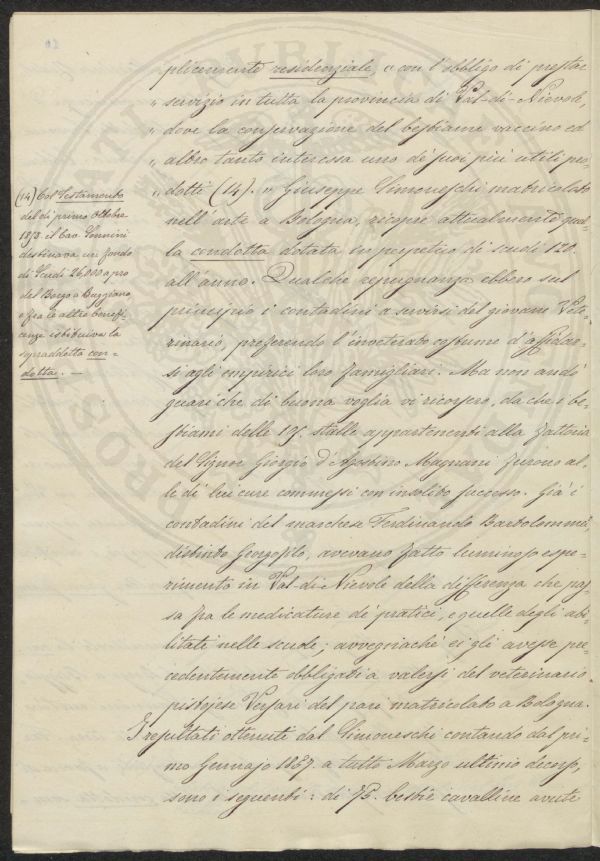 plicemente residenziale, „ con l'obbligo di prestar
„ servizio in tutta la provincia di Val-di-Nievole,
„ dove la conservazione del bestiame vaccino ed
„ altro tanto interessa uno de' suoi più utili pro
„ dotti (14). „ Giuseppe Simoneschi matricolato
nell'arte a Bologna, ricopre attualmente quel-
la condotta dotata in perpetuo di scudi 120.
all'anno. Qualche repugnanza ebbero sul
principio i contadini a servirsi del giovane Vete-
rinario, preferendo l'inveterato costume d'affidar-
si agli empirici loro famigliari. Ma non andò
guari che di buona voglia vi ricorsero, da che i be-
stiami delle 19. stalle appartenenti alla Fattoria
del Signor Giorgio d'Agostino Magnani furono al-
le di lui cure commessi con insolito successo. Già i
contadini del marchese Ferdinando Bartolommei,
distinto Georgofilo, avevano fatto luminoso espe-
rimento in Val-di-Nievole della differenza che pas-
sa fra le medicature de' pratici, e quelle degli abi-
litati nelle scuole; avvegnachè ei gli avesse pre-
cedentemente obbligati a valersi del veterinario
pistojese Versari del pari matricolato a Bologna.
I resultati ottenuti dal Simoneschi contando dal pri-
mo Gennajo 1857. a tutto Marzo ultimo decorso,
sono i seguenti: di 75. bestie cavalline avute
(14) Col Testamento
del dì primo Ottobre
il Cav. Vannini
destinava un fondo
di Scudi 26,000 a pro
del Borgo a Buggiano,
e fra le altre benefi-
cenze istituiva la
sopraddetta con-
dotta. —